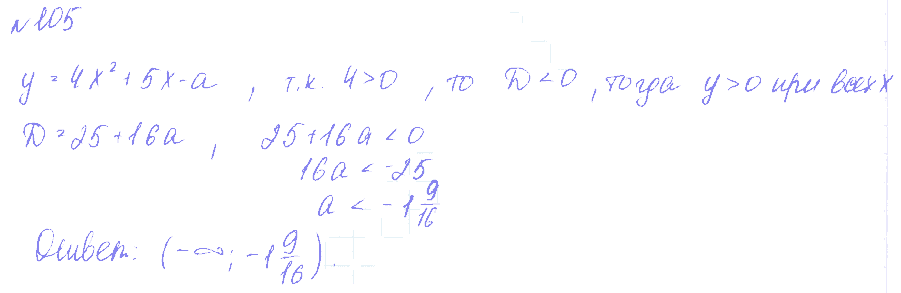 №105
y = 4x² + 5x - a , т.к. 4>0 , то D < 0 , тогда y>0 при всех x
D = 25 + 16a , 25+16a < 0
16a < -25
a < -1 9/16
Ответ: (-∞; -1 9/16).